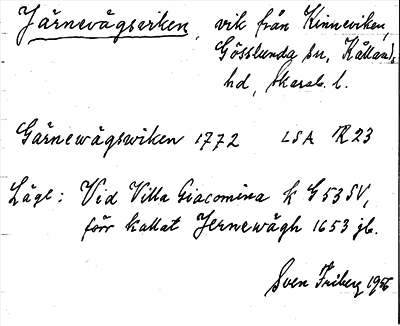 Järnevågsviken, vik från Kinneviken,
Gösslunda sn, Kållands
hd, Skarab. l.
Gärnewågswiken 1772 LSA R 23
Läge: Vid Villa Giacomina k G 53 SV,
förr kallat Jernewågh 1653 jb.
Sven Friberg 1956